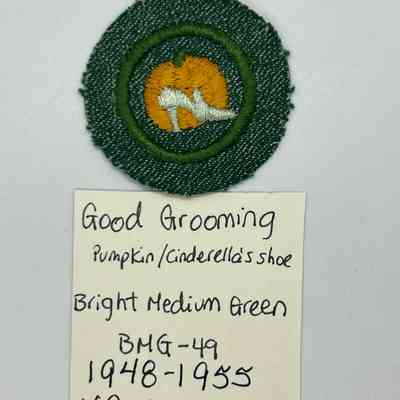 Good Grooming
Pumpkin/Cinderella's shoe
Bright Medium Green
BMG-49
1948-1955